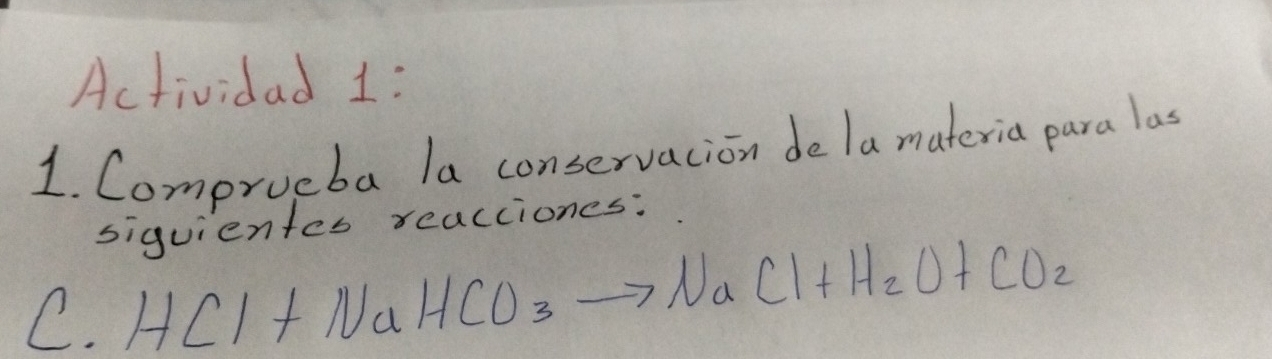 Actividad 1:
1. Comprueba la conservación de la materia para las
siguientes reacciones:
C. HCl + NaHCO₃ → NaCl + H₂O + CO₂